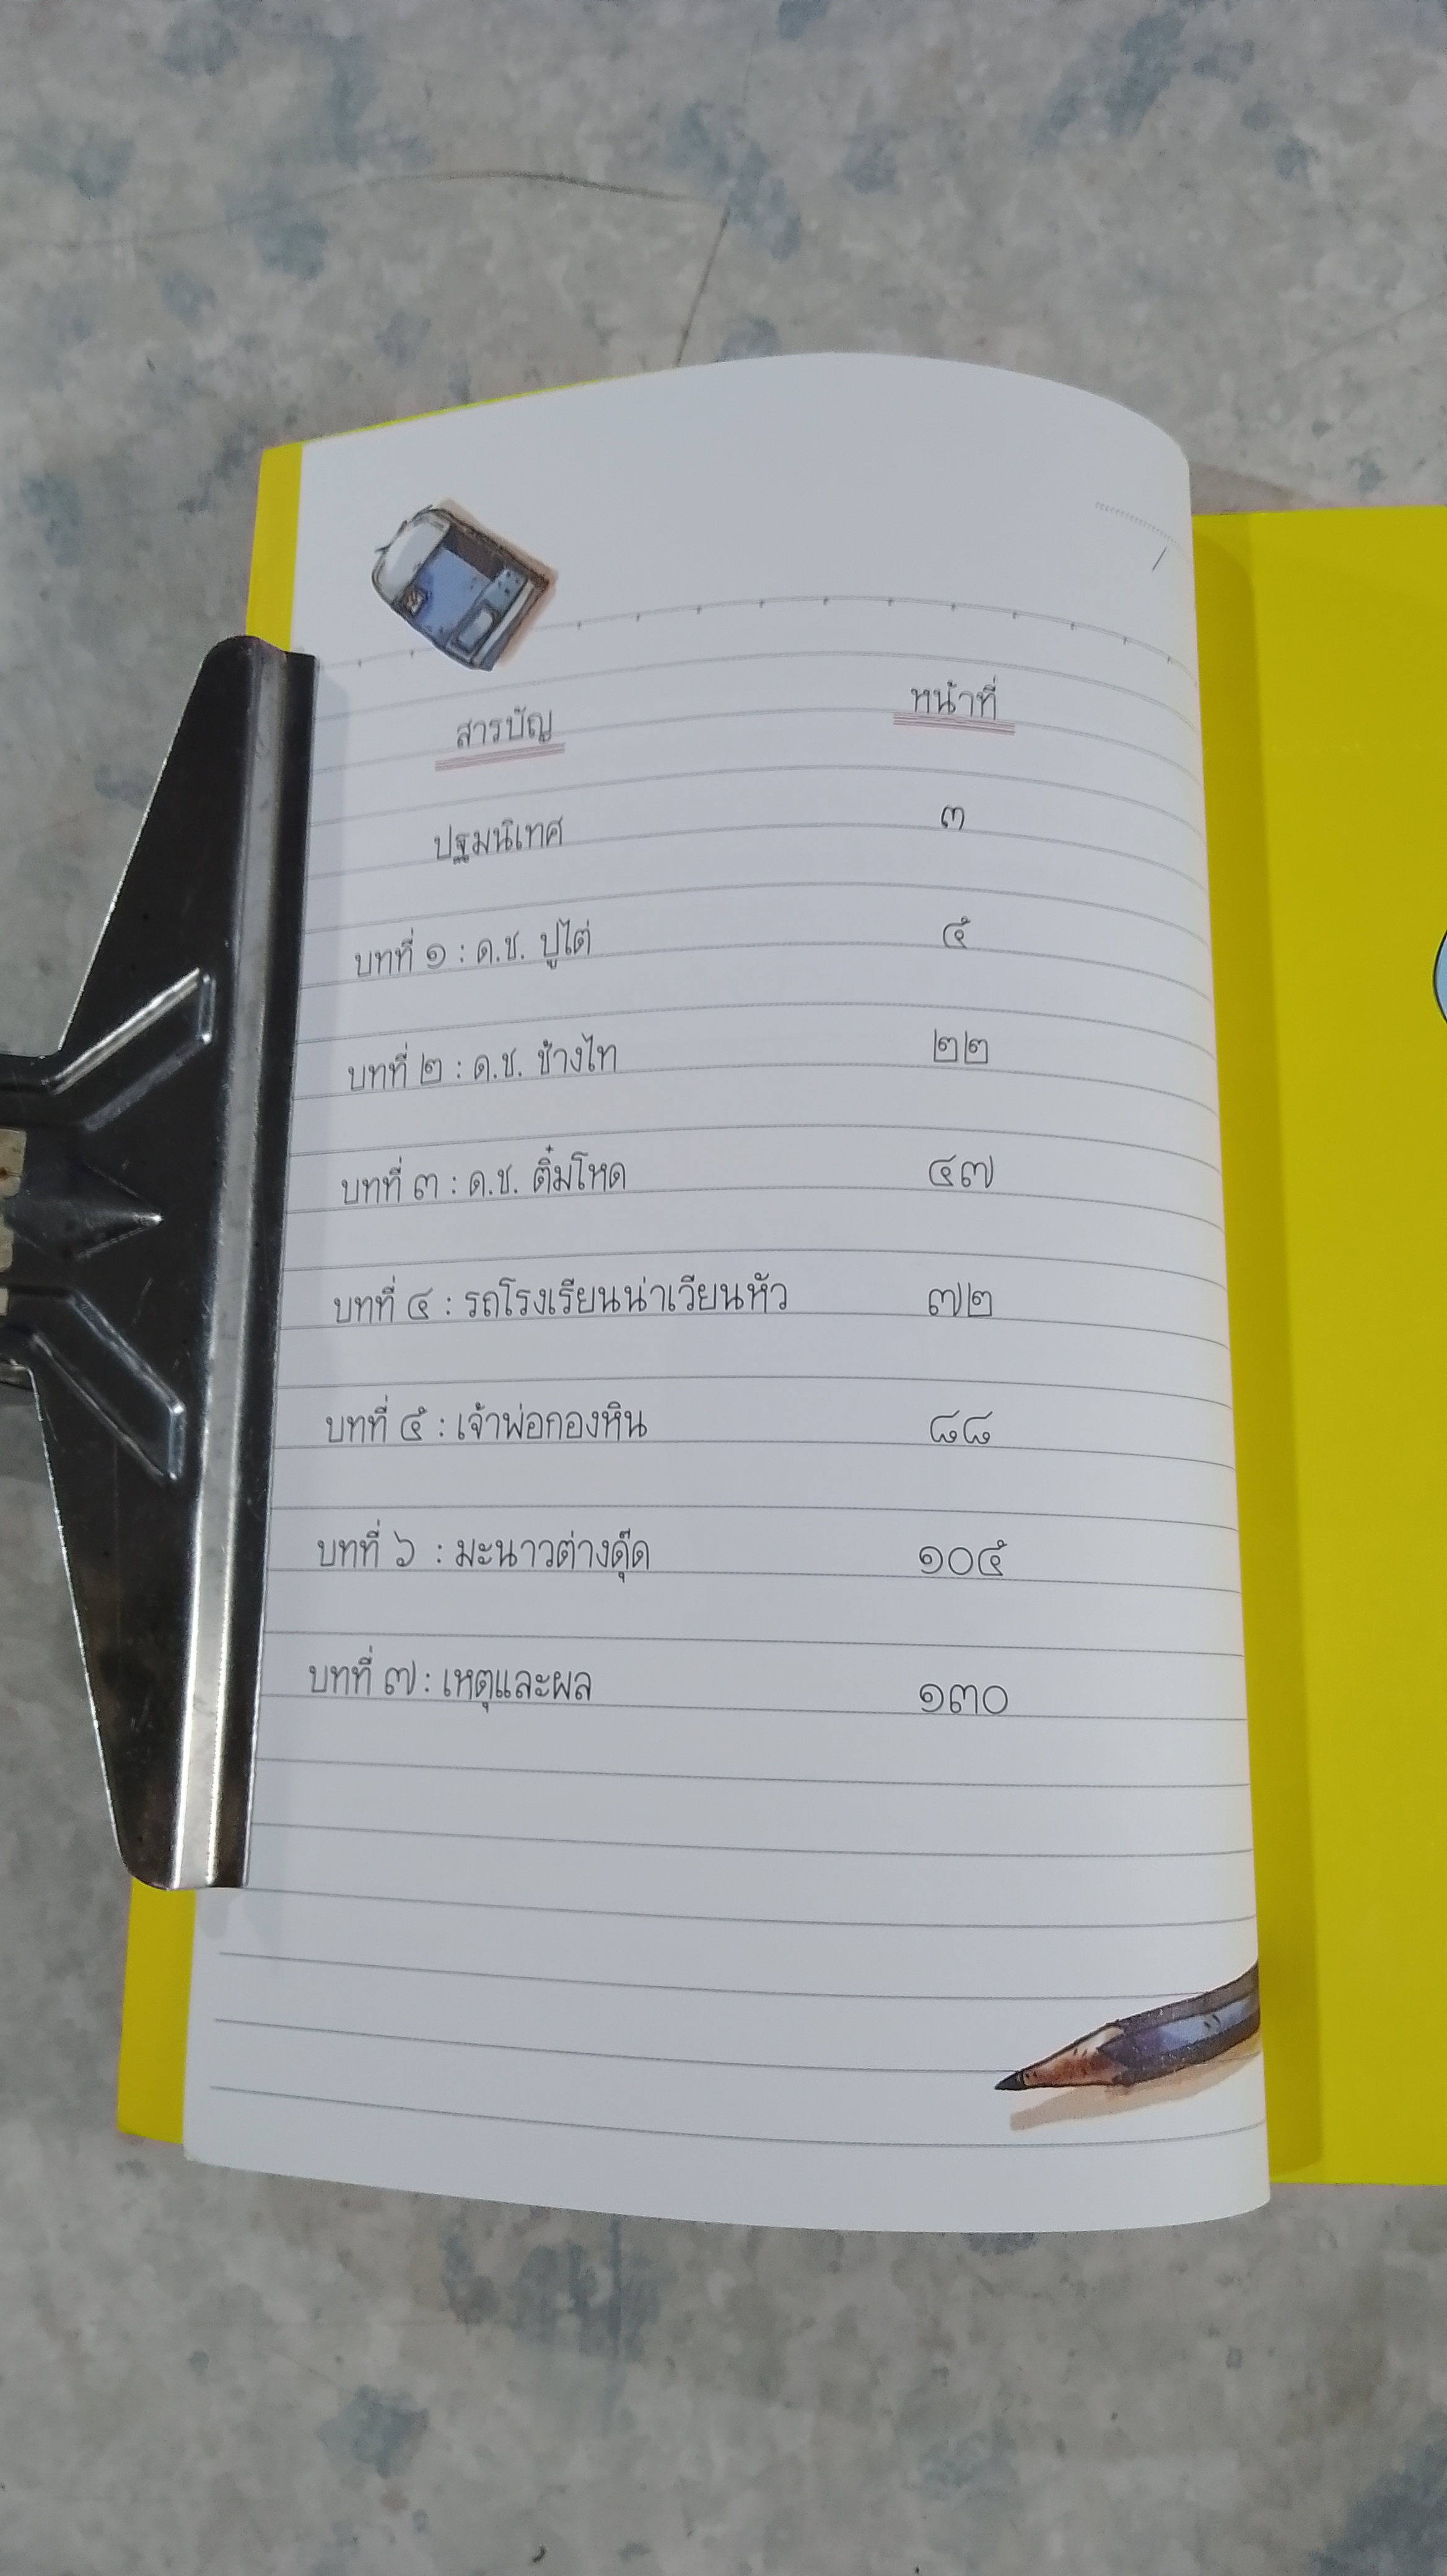 สารบัญ หน้าที่
ปฐมนิเทศ ๓
บทที่ ๑ : ด.ช. ปูไต่ ๕
บทที่ ๒ : ด.ช. ช้างไท ๒๒
บทที่ ๓ : ด.ช. ติ๋มโหด ๔๗
บทที่ ๔ : รถโรงเรียนน่าเวียนหัว ๗๒
บทที่ ๕ : เจ้าพ่อกองหิน ๘๘
บทที่ ๖ : มะนาวต่างดุ๊ด ๑๐๕
บทที่ ๗ : เหตุและผล ๑๓๐